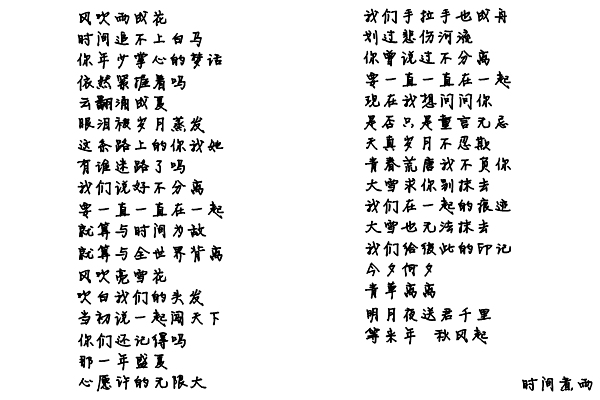 风吹雨成花
时间追不上白马
你年少掌心的梦话
依然紧握着吗
云翻涌成夏
眼泪被岁月蒸发
这条路上的你我她
有谁迷路了吗
我们说好不分离
要一直一直在一起
就算与时间为敌
就算与全世界背离
风吹亮雪花
吹白我们的头发
当初说一起闯天下
你们还记得吗
那一年盛夏
心愿许的无限大
我们手拉手也成舟
划过悲伤河流
你曾说过不分离
要一直一直在一起
现在我想问问你
是否只是童言无忌
天真岁月不忍欺
青春荒唐我不负你
大雪求你别抹去
我们在一起的痕迹
大雪也无法抹去
我们给彼此的印记
今夕何夕
青草离离
明月夜送君千里
等来年 秋风起
时间煮雨